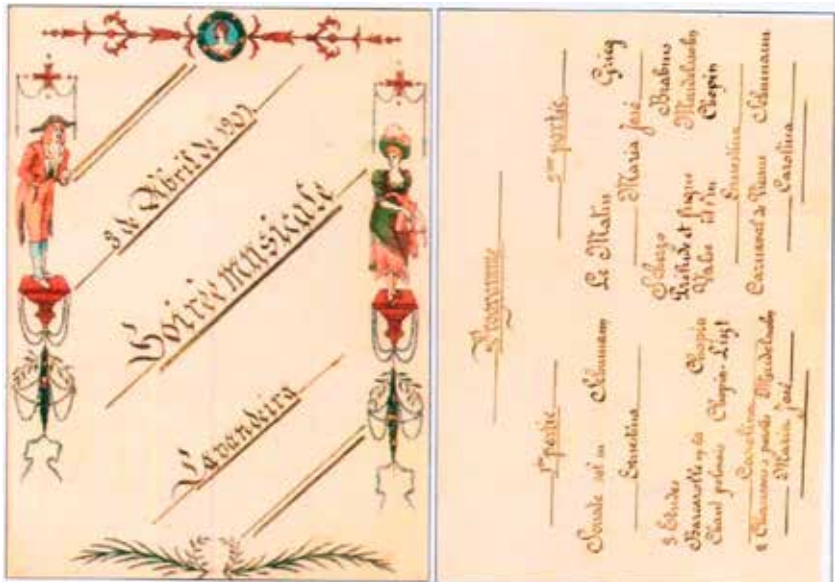 3 de Abril de
Soirée musicale
Lavandeira
Programme
1re partie
Sonate sol m Schumann
Ernestina
3 Etudes
Barcarolle Chopin
Chant polonais Chopin-Liszt
Carolina
2 Chansons s. paroles Mendelssohn
Maria José
2me partie
Le Matin Grieg
Maria José
Scherzo Brahms
Prélude et fugue Mendelssohn
Valse Chopin
Ernestina
Carnaval de Vienne Schumann
Carolina